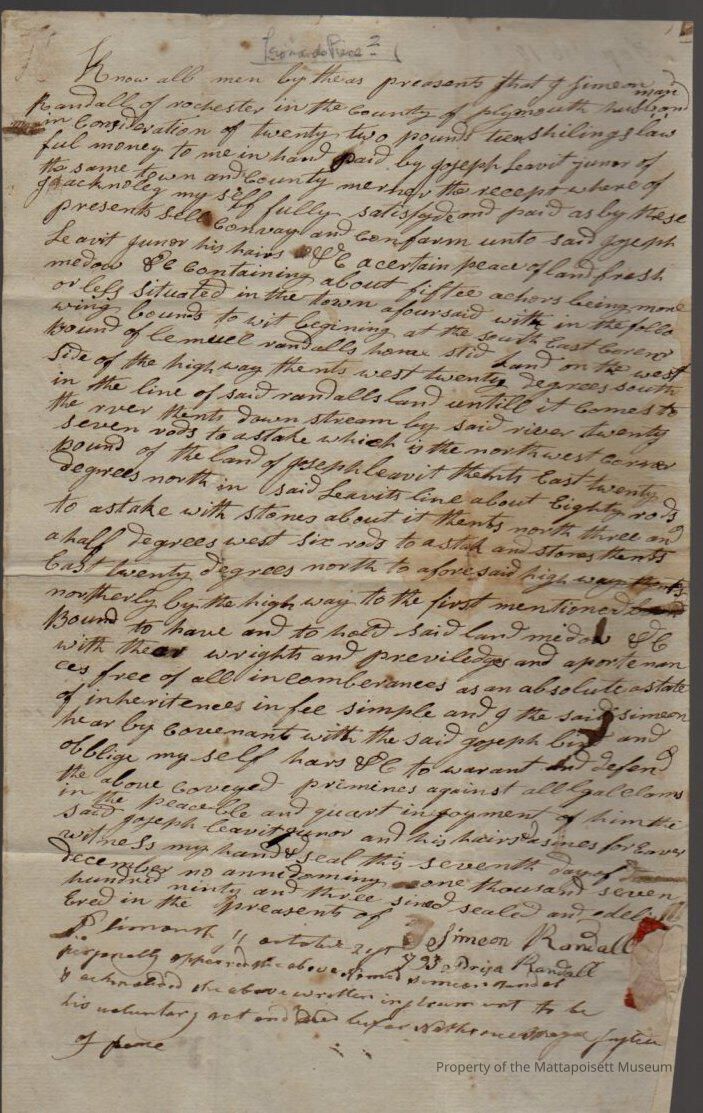 Know all men by theas preasents that I Simeon
Randall of rochester in the County of plymouth husbond
man
in Consideration of twenty two pounds ten shilings law
ful money to me in hand paid by Joseph Leavit junor of
the same town and County the recept where of
I acknoleg my self fully satisfyde and paid as by these
presents sell Convay and Confarm unto said Joseph
Leavit junor his hairs &C a certain peace of land fresh
medow &C Containing about fiftee achors being more
or less situated in the town afoursaid with in the follo
wing bounds to wit begining at the south East Corenr
bound of lemuel randalls home sted land on the west
side of the high way thents west twenty degrees south
in the line of said randalls land untill it Comes to
the rver thents down stream by said river twenty
seven rods to a stake which is the north west Corner
bound of the land of Joseph leavit thents East twenty
degrees north in said Leavits line about Eighty rods
to a stake with stones about it thents north three and
a half degrees west six rods to a stak and stones thents
East twenty degrees north to afore said high way thents
northerly by the high way to the first mentioned
Bound to have and to hold said land midow &C
with thear wrights and previledges and aportenan
ces free of all incomberances as an absolute astate
of inheritences in fee simple and I the said simeon
hear by Covenant with the said Joseph and
obblige my self hars &C to warant and defend
the above Coveyed primines against all Lgal Clams
in the peaceble and quart injoyment of him the
said Joseph leavit junor and his hairs & asines for Eaver
witness my hand & seal this seventh day of
december no annidoming one thousand seven
hundred ninty and three sined sealed and
Ered in the preasents of
Plimouth October 793 Simeon Randall
Randall
personally appeared the above named Simeon Randal
& acknolided the above written instrument to be
his voluntary act and Deed before Justice
of peace
Property of the Mattapoisett Museum